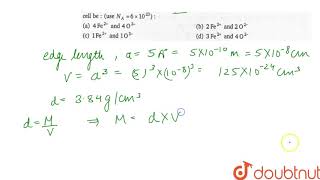 cell be : (use N_A = 6 × 10²³) :
(a) 4 Fe²⁺ and 4 O²⁻ (b) 2 Fe²⁺ and 2 O²⁻
(c) 1 Fe²⁺ and 1 O²⁻ (d) 3 Fe²⁺ and 4 O²⁻
edge length, a = 5 Å = 5×10⁻¹⁰ m = 5×10⁻⁸ cm
V = a³ = (5)³ × (10⁻⁸)³ = 125×10⁻²⁴ cm³
d = 3.84 g/cm³
d = M/V ⇒ M = d×V
doubtnut